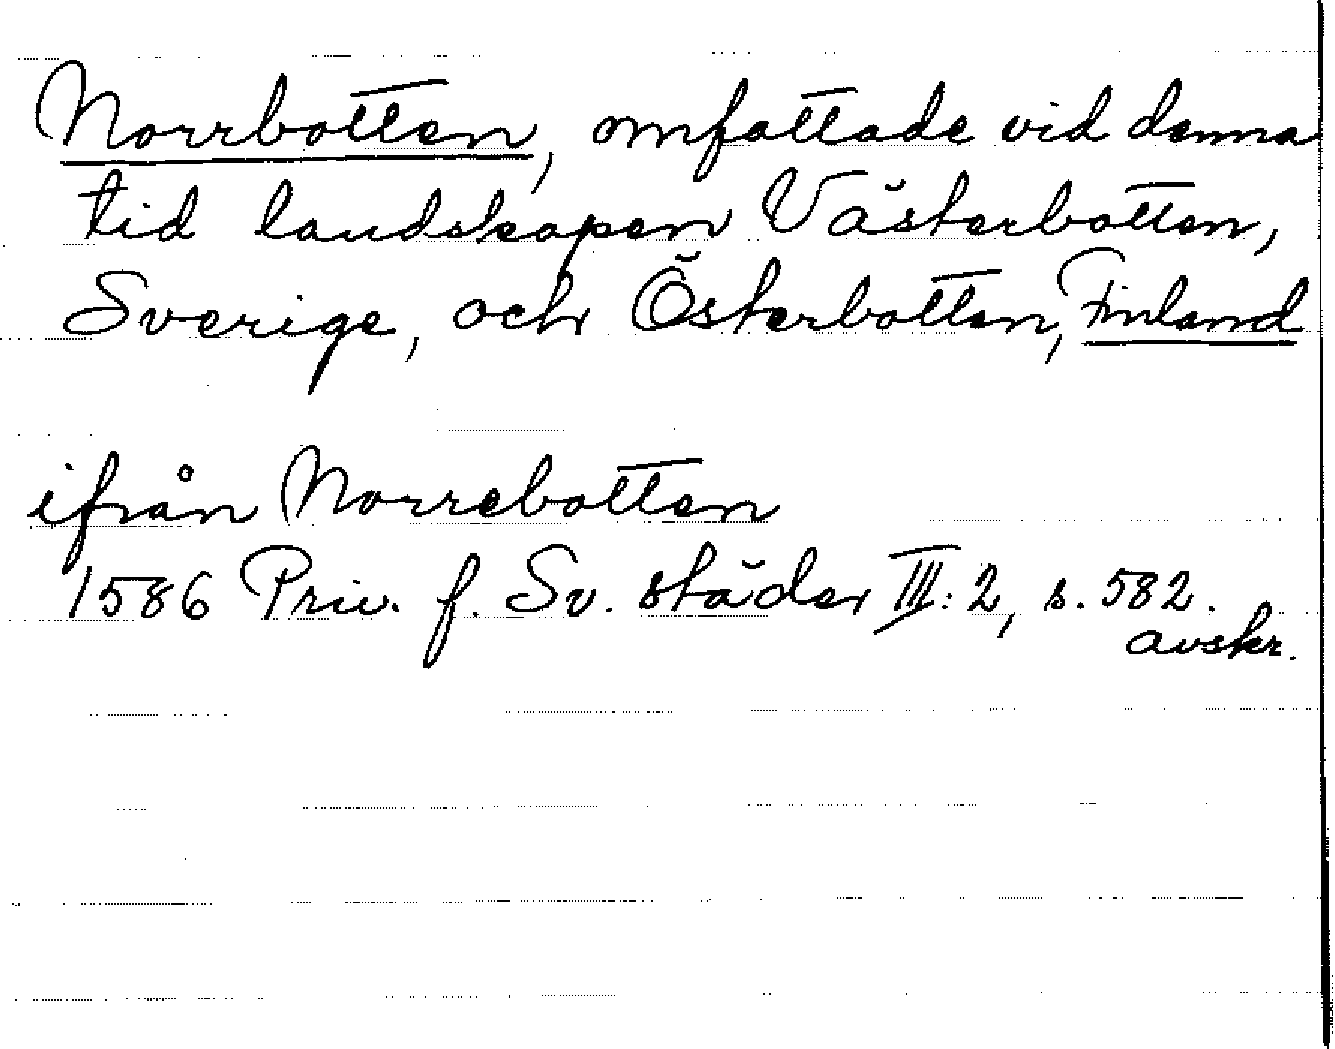 Norrbotten, omfattade vid denna
tid landskapen Västerbotten,
Sverige, och Österbotten, Finland
ifrån Norrebotten
1586 Priv. f. Sv. städer III:2, s. 582.
avskr.